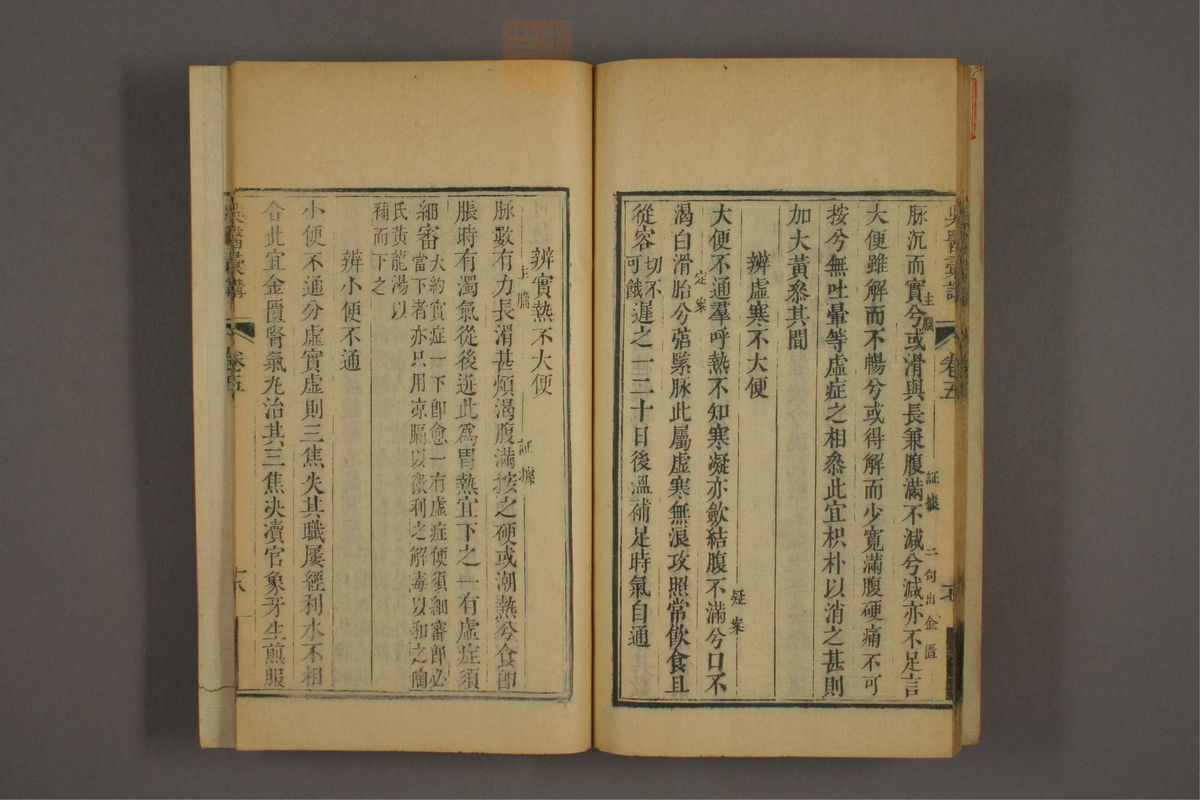 吳醫彙講
卷五
十七
主腦
証據
二句出金匱
脉沉而實兮或滑與長兼腹滿不減兮減亦不足言
大便雖解而不暢兮或得解而少寬滿腹硬痛不可
按兮無吐暈等虛症之相叅此宜枳朴以消之甚則
加大黃叅其間
辨虛寒不大便
疑案
大便不通羣呼熱不知寒凝亦歛結腹不滿兮口不
定案
渴白滑胎兮弦緊脉此屬虛寒無浪攻照常飲食且
從容切不可餓遲之一二十日後溫補足時氣自通
辨實熱不大便
主腦
証據
脉數有力長滑甚煩渴腹滿按之硬或潮熱兮食即
脹時有濁氣從後迸此為胃熱宜下之一有虛症須
細審大約實症一下即愈一有虛症便須細審即必
當下者亦只用凉膈以微利之解毒以和之陶
氏黃龍湯以
補而下之
辨小便不通
小便不通分虛實虛則三焦失其職屢經利水不相
合此宜金匱腎氣丸治其三焦决瀆官象牙生煎服
吳醫彙講
卷五
十八